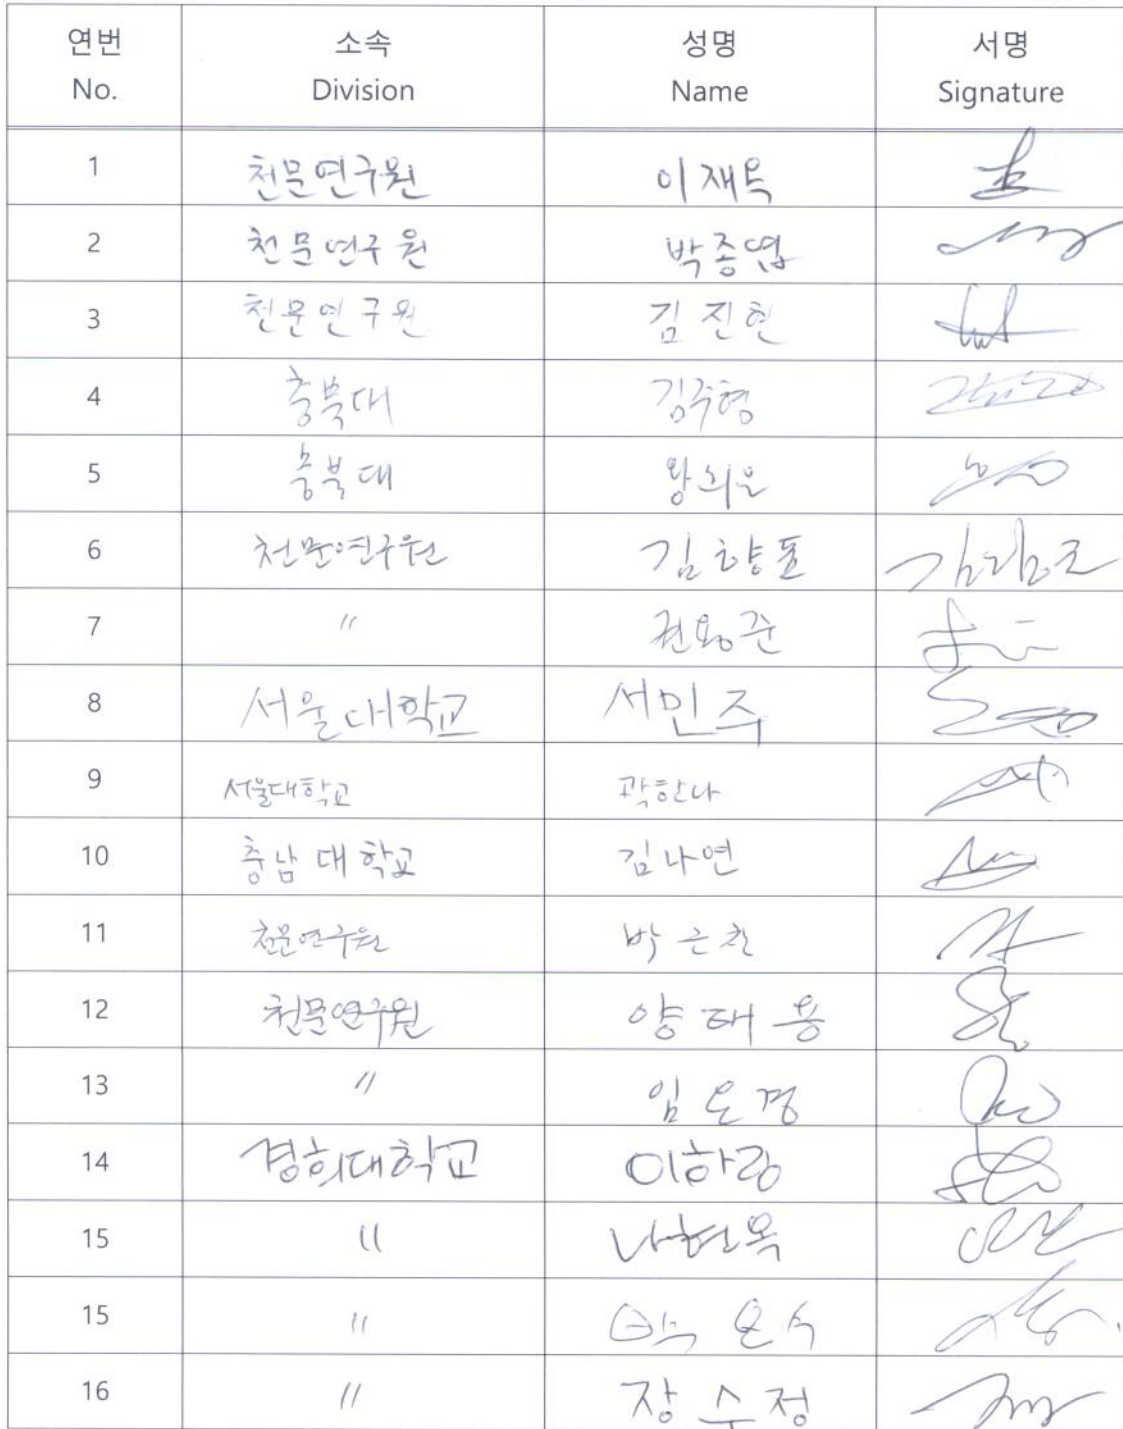 연번 소속 성명 서명
No. Division Name Signature
1 천문연구원 이재옥
2 천문연구원 박종엽
3 천문연구원 김진현
4 충북대 김주형
5 충북대 왕희은
6 천문연구원 김향표
7 〃 권용준
8 서울대학교 서민주
9 서울대학교 곽한나
10 충남대학교 김나연
11 천문연구원 박근찬
12 천문연구원 양태용
13 〃 임은경
14 경희대학교 이하림
15 〃 나현옥
15 〃
16 〃 장수정